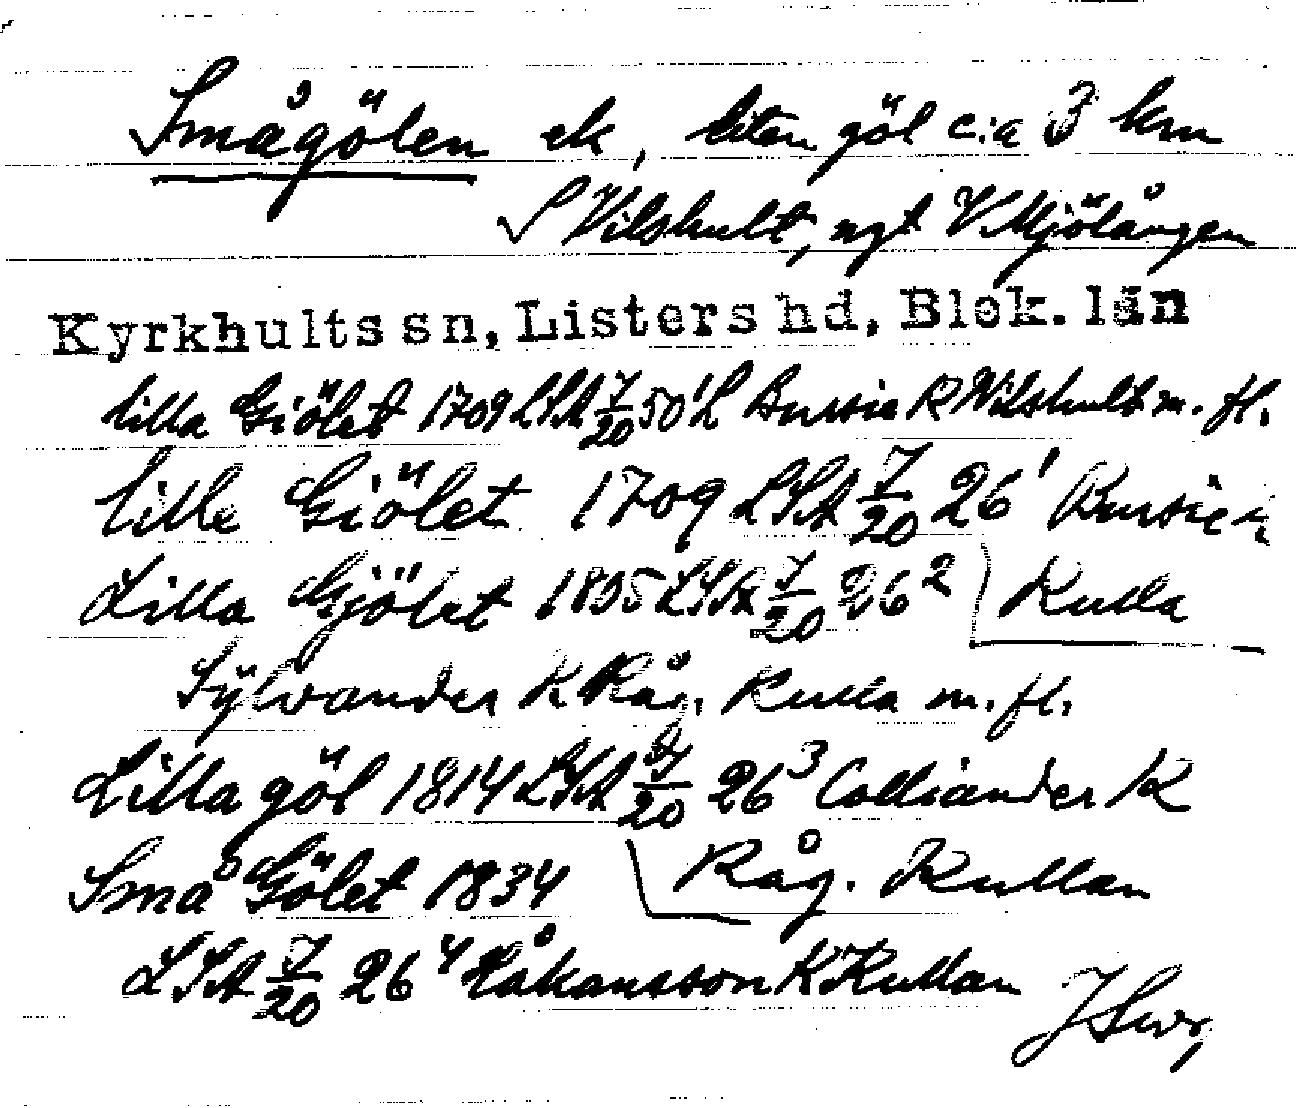 Smågölen ek, liten göl c:a 3 km
S Vilshult, ngt V Mjölången
Kyrkhults sn, Listers hd, Blek. län
lilla Giölet 1709 LSA 7/20 50¹ L Bursie R Wilshult m. fl.
lille Giölet 1709 LSA 7/20 26¹ Bursie
Lilla Gjölet 1805 LSA 7/20 26² Kulla
Sylvander K Råg. Kulla m. fl.
Lilla göl 1814 LSA 7/20 26³ Colliander K
Små Gölet 1834 Råg. Kullan
LSA 7/20 26⁴ Håkansson K Kullan